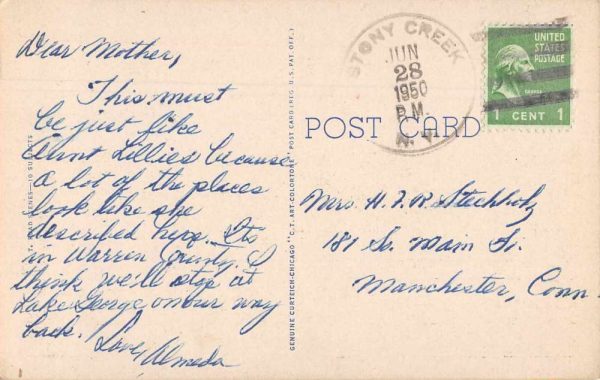 Dear Mother,
This must
be just like
Aunt Lillies because
a lot of the places
look like she
described hers. Its
in Warren County. I
think we'll stop at
Lake George on our way
back. Love, Almeda
GENUINE CURTEICH-CHICAGO "C.T. ART-COLORTONE" POST CARD (REG. U.S. PAT. OFF.)
STONY CREEK
JUN
28
1950
P.M.
N.Y.
UNITED
STATES
POSTAGE
1 CENT 1
POST CARD
Mrs. H. F. R. Stechholz
181 So. Main St.
Manchester, Conn.